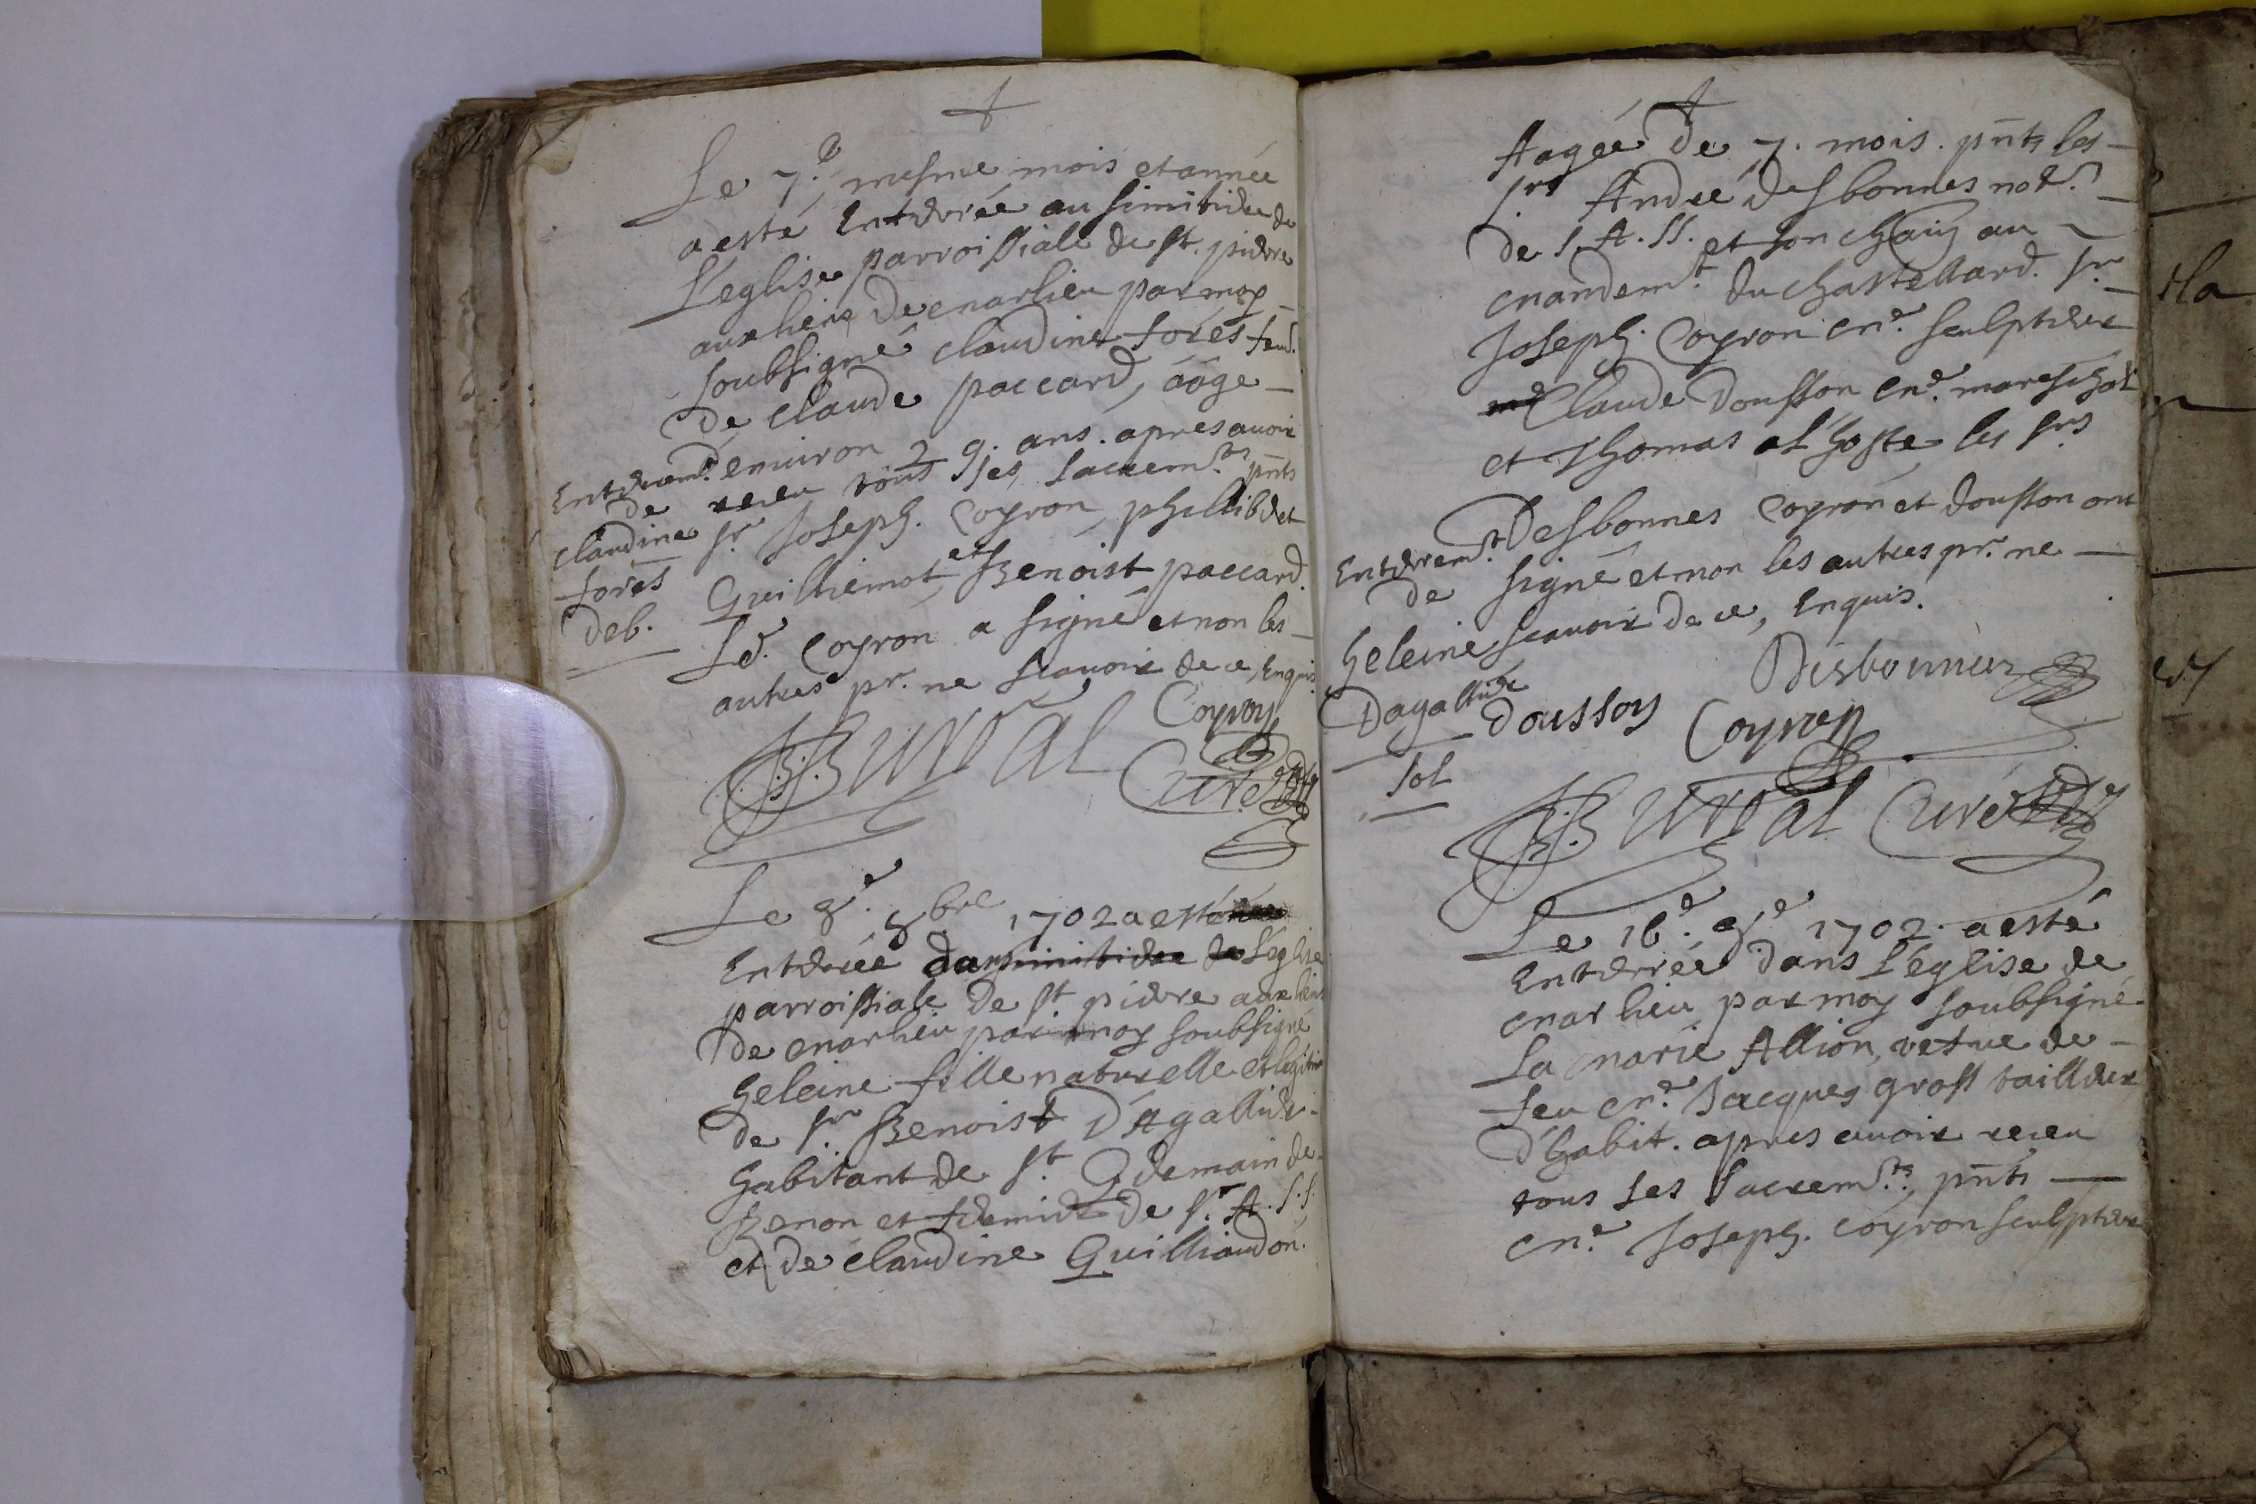 Le 7.e mesme mois et année
a esté Enterrée au simitiere de
L'eglise parroissiale de st. pierre
aux liens de marlieu par moy
soubsigné claudine forés fem.e
de claude paccard, aâge
environ 29. ans. apres avoir
receu tous ses sacrem.ts pñts
sr. Joseph. Coyron, phillibert
Guilliemot, et Benoist paccard.
Led. Coyron a signé et non les
autres pr. ne scavoir de ce, Enquis.
Coyron
BB Burdal Curé
Enterrem.t
de
claudine
forés
deb.
Le 8.e 8bre 1702 a esté
Enterrée dans l'eglise
parroissiale de st pierre aux liens
de marlieu par moy soubsigné
heleine fille naturelle et legitime
de sr. Benoist D'Agallier
habitant de st. Germain de
Benon et fermier de s. A. S. S.
et de claudine Guilliaudon.
Aagée de 7. mois. pñts les
srs André desbonnes not.e
de S. A. SS. et son chatn au
mandem.t du chastellard. sr.
Joseph. Coyron me. sculpteur
Claude Dousson me. mareschal
et Thomas alhoste les srs
Desbonnes Coyron et dousson ont
signé et non les autres pr. ne
scavoir de ce, Enquis.
Desbonnes
dousson Coyron
BB Burdal Curé
Enterrem.t
de
heleine
Dagallier
sol
Le 16.e 8.e 1702. a esté
Enterrée dans L'église de
marlieu par moy soubsigné
La marie Allion, vefve de
feu me. Jacques gross tailleur
d'habit. apres avoir receu
tous ses sacrem.ts, pñts
me. Joseph. coyron sculpteur